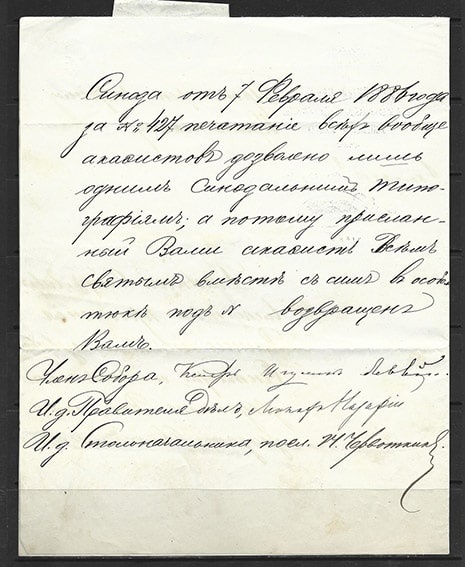 Синода отъ 7 Февраля 1881 года
за № 427 печатаніе всѣхъ вообще
акаѳистовъ дозволено лишь
однимъ Синодальнымъ Типо-
графіямъ; а потому прислан-
ный Вами акаѳистъ Всѣмъ
святымъ вмѣстѣ съ симъ въ
подъ № возвращенъ
Вамъ.
Членъ Собора,
И. д. Правителя Дѣлъ, Назарій
И. д. Столоначальника, посл. Н. Червоткинъ